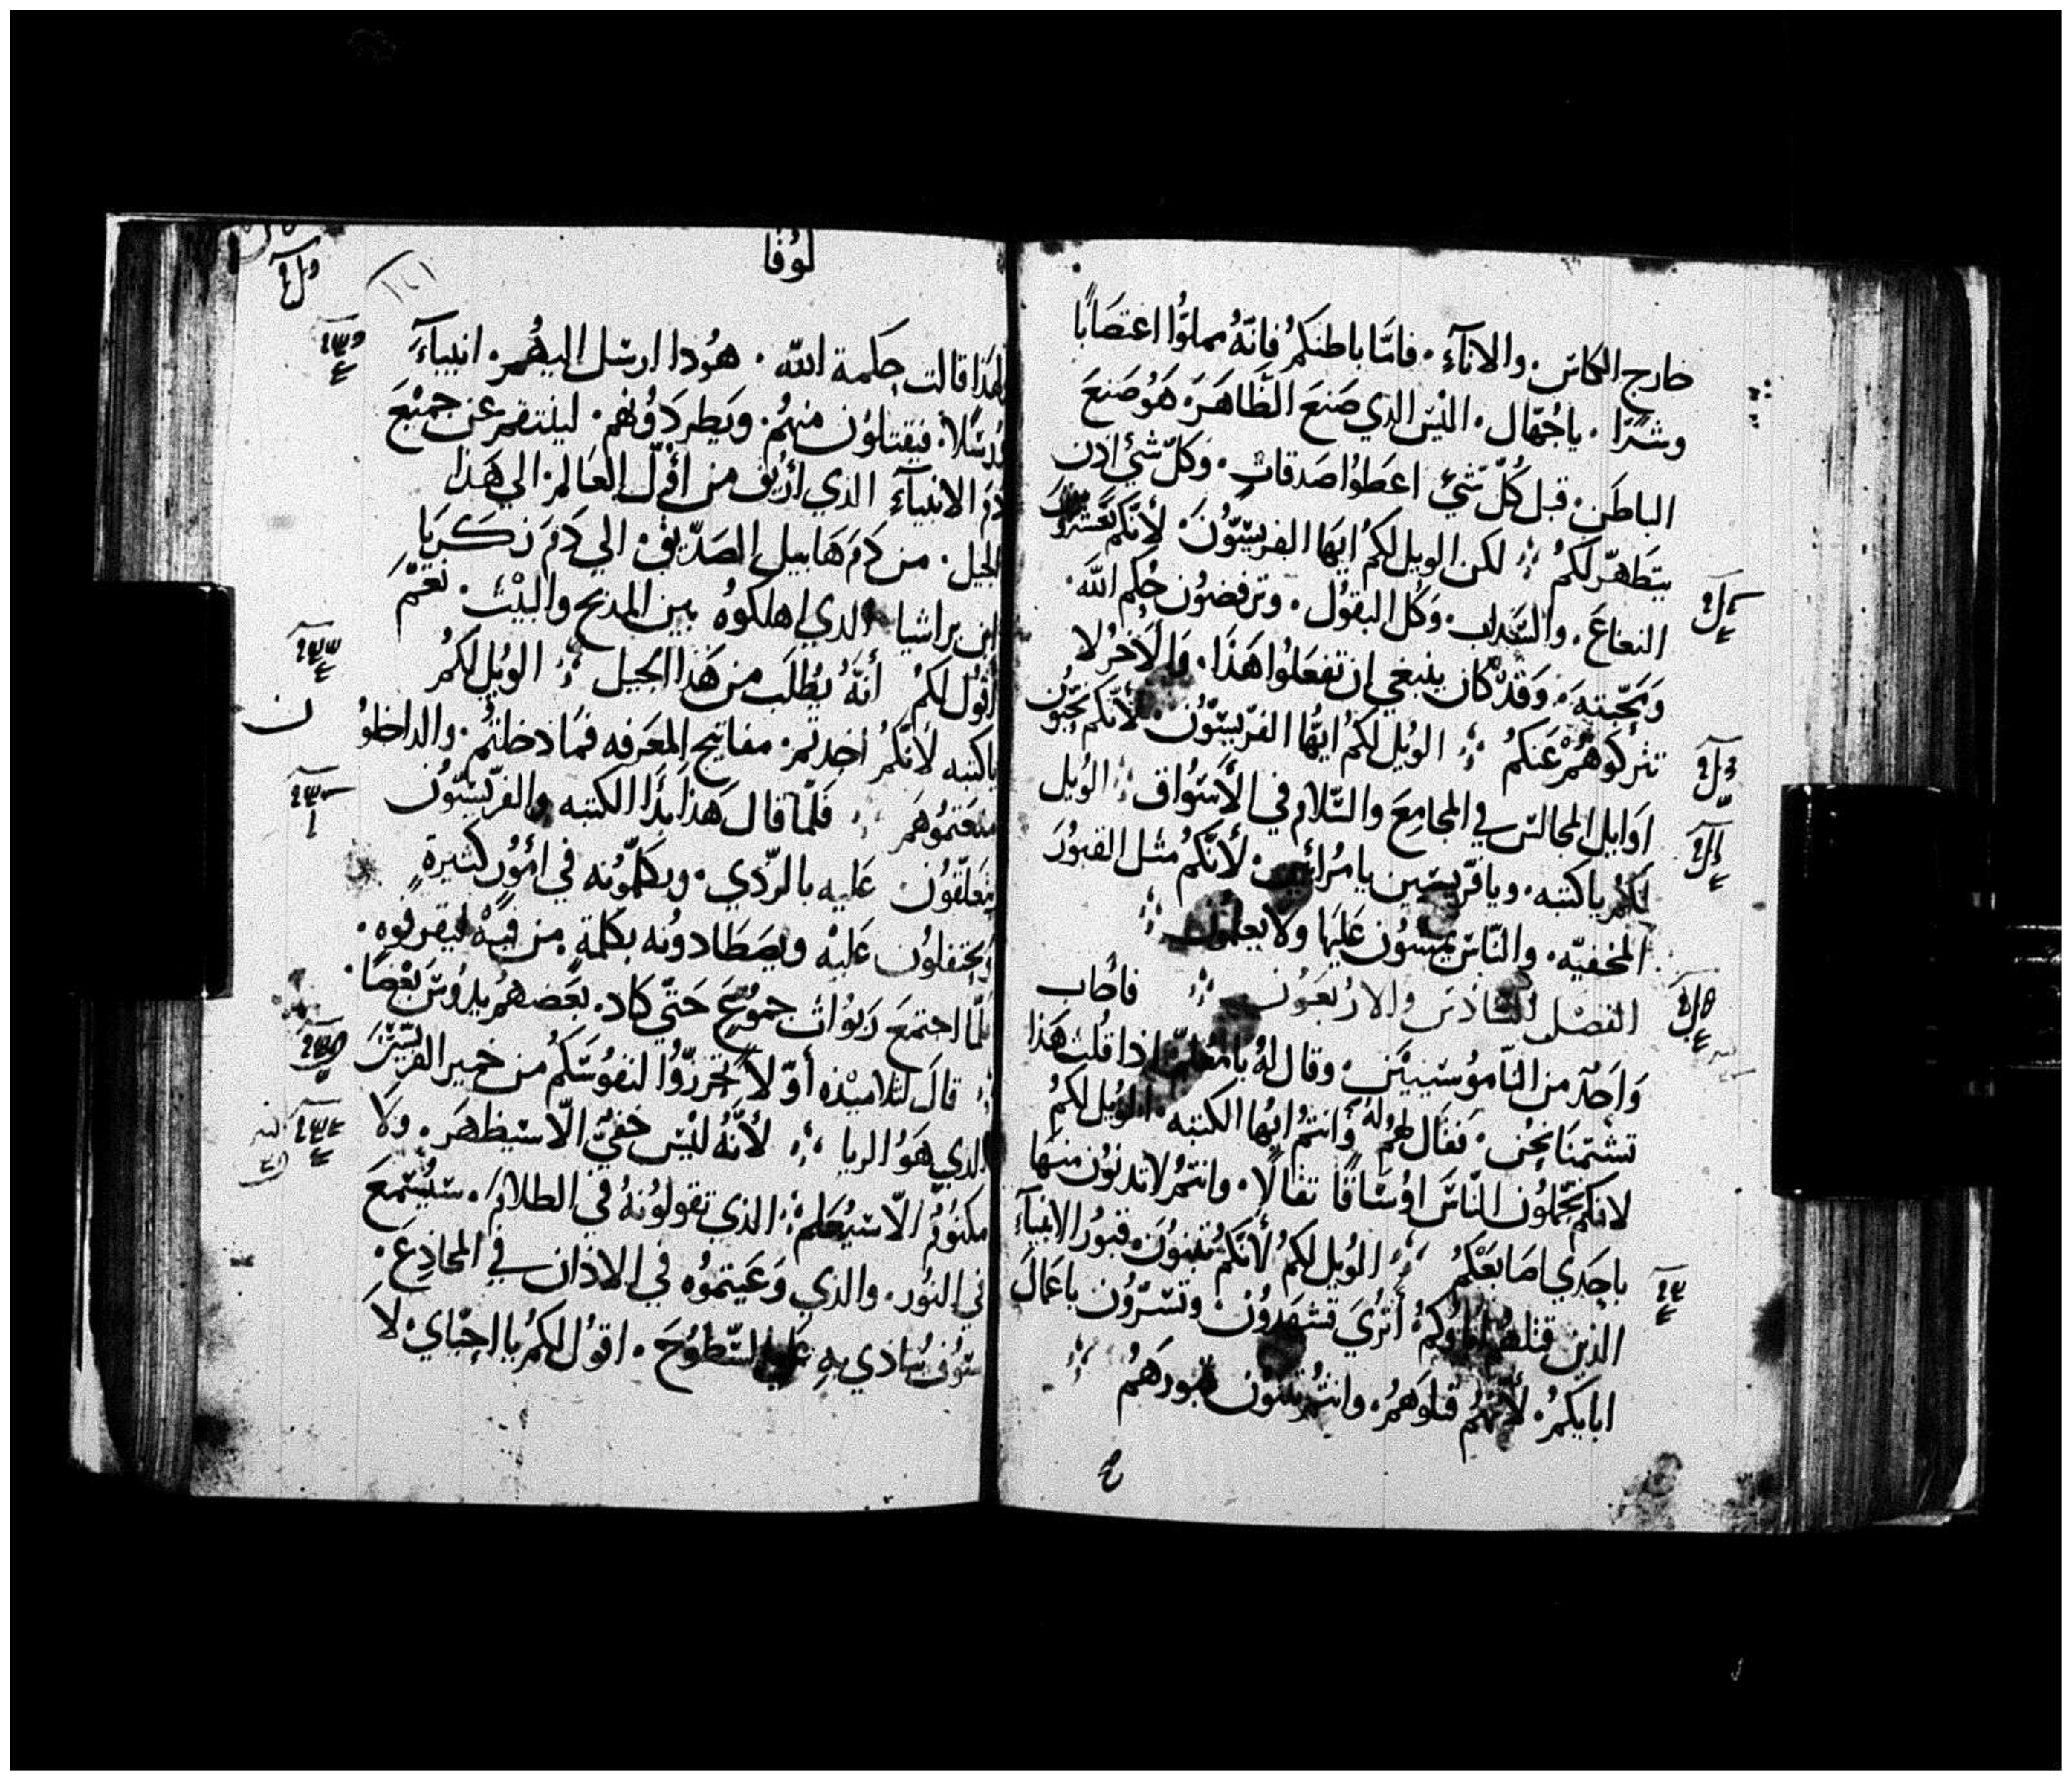 خارج الكاس. والانآء. فامّا باطنكم فانّهُ مملوُّا اغتصَابًا
وشرًا. ياجُهّال. اليْسَ الذي صَنعَ الظَّاهَرَ. هَوُ صَنعَ
الباطَن. قبل كُلّ شيٍ اعطَوُا صَدقاتٍ. وَكلّ شيُ اذن
يتَطهّر لكمُ ؞ لكن الويل لكمُ ايهَا الفريسّيّوُنَ. لأنّكم تعَشّرون
النعناعَ. والسَّذاب. وَكل البقوُل. وترفضوُن حُكم اللّه.
وَمحَّبتهَ. وَقدْ كان ينبغي ان تفعَلوُا هَذَا. وَالأخرُ لا
تتركوُهمُْ عَنكمُ ؞ الويُل لكمُ ايهُّا الفرّيسيّوُن. لأنّكم تحبّوُن
اوَايل المجالسْ في المجامعَ والسّلام في الأسَوُاق ؞ الويُل
لكمُ ياكتبه. ويافرّيسّين يامُرائيين. لأنّكمُ مثل القبوُرَ
المخفيّه. والنّاسَ يمشوُن عَليَها ولايعلموُن ؞
الفصْل السّادسَ والاربُعَوُن ؞ فأجاب
وَاحَدٌ من النّاموُسييْن. وقال لهُ يامُعلمّ اذا قلُت هَذا
تشتمنَا نحُن. فقَال لهمُ وَانتمُ ايهُا الكتبه. الويُل لكمُ
لانكم تحّملوُن النّاسَ اوُسَاقًا ثقالًا. وانتمُ لاتدنوُن منهَا
باحدَي اصَابعَْكمُ ؞ الويُل لكمُ لأنّكم تبنوُنَ. قبوُر الانبيآء
الذين قتلهمُ اباوكمُ. أترُيَ تشهَدوُن. وتسُّروُن باعَمَال
ابايكمُ. لأنهّمُ قتلوَهمُ. وانتمُ تبنوُن قبورهَمُ ؞
لوُقا
١٦١
لهَذَا قالت حِكمة اللّه. هوُذا ارسَل اليهُم. انبيآءَ
ورُسَلًا. فيقتلوُن منهمُ. ويَطردَوُنهم. لينتقم عن جميْعَ
دَم الانبيآءَ الذي أرُيق من اوّل العَالم. الي هَذا
الجيل. من دَم هَابيل الصَدّيق. الي دَمَ زكريَا
ابن براشيا الذي اهلكوهُ بين المذبح والبيْت. نعَمْ
اقوُل لكمُ أنّهَُ يطُلَب من هَذا الجيل ؞ الويُل لكمُ
ياكتبه لأنّكمُ اخذتم. مفاتيح المعَرفه فمَا دخلتمُ. والداخلوُن
منعَتموُهَم ؞ فلّما قال هَذا بَدَا الكتبه والفرّيسيّوُن
يتعَلّقوُن عَليه بالرّدي. ويكلّموُنه في اموُر كثيرةٍ
ويحتفلوُن عَليْه ويصَطَادونُه بكلمةٍ. من فيهْ ليقرفوُه.
فلمّا اجتمعَ رَبوُاتُ جموُعٍَ حَتّي كاد. بعَضهمُ يدوُسَ بعْضًا.
؞ قالَ لتلاميْذه أوّلًا تحرزّوُا لنفوُسَكمُ من خمير الفريّسيّنَ
الذي هَوُ الريا ؞ لأنّهُ ليْس خفيٌّ الّا سيَظهَر. ولَا
مكتوُمٌ الّا سيُعَلم ؞ الذي تقولوُنهُ في الظلامَ. سيُسُتمعَ
في النوُر. والذي وَعَيتموُه في الاذان في المخادِعَ.
سوَُف ينُادي بهِ عَلي السّطوُحَ. اقوُل لكمُ يا احبّاي. لاَ